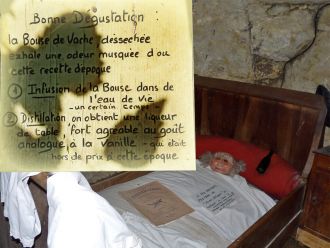 Bonne Dégustation
la Bouse de Vache, dessechée
exhale une odeur musquée d'ou
cette recette d'époque
1 Infusion de la Bouse dans de
l'eau de vie
- un certain temps -
2 Distillation on obtient une liqueur
de table, fort agréable au goût
analogue à la vanille - qui était
hors de prix à cette époque